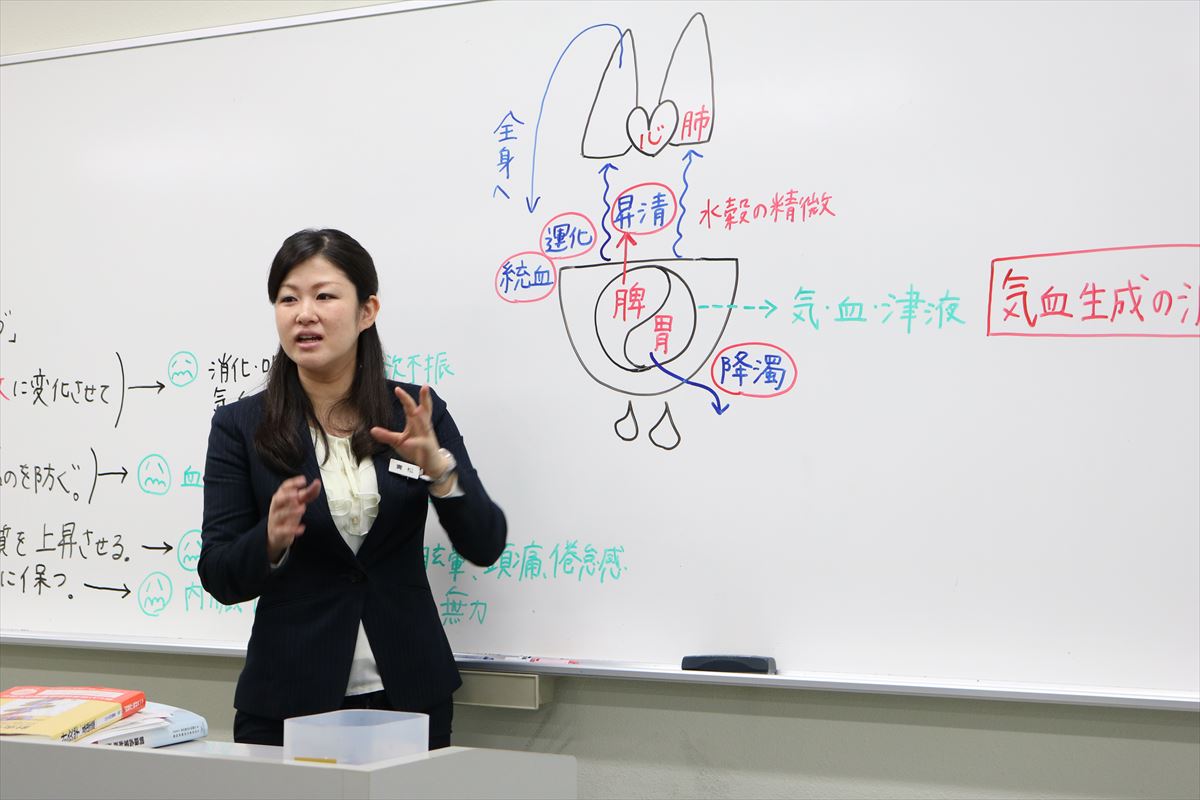 全身へ
心
肺
昇清
水穀の精微
運化
統血
脾
胃
気・血・津液
降濁
気血生成の
に変化させて
消化・
欲不振
のを防ぐ。
血
を上昇させる。
眩暈、頭痛、倦怠感
に保つ。
内
無力